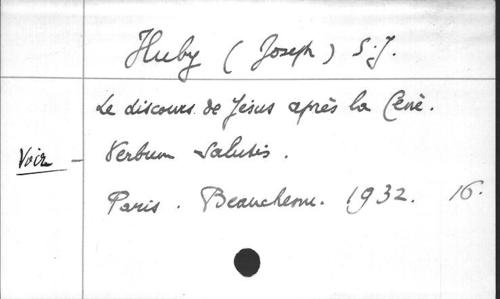 Huby (Joseph) S.J.
Le discours de Jésus après la Cène.
Voir - Verbum Salutis.
Paris. Beauchesne. 1932. 16.